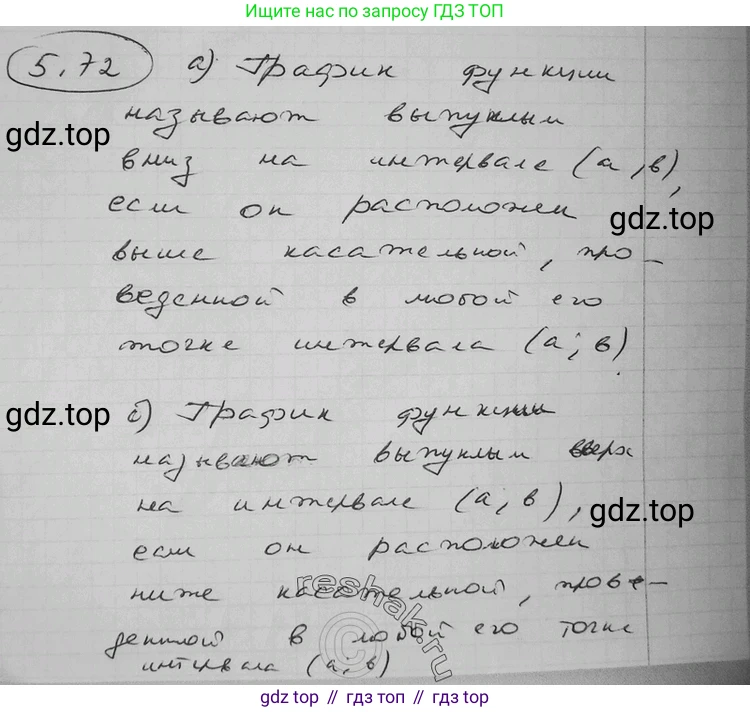 Ищите нас по запросу ГДЗ ТОП
5.72 а) График функции
называют выпуклым
gdz.top
вниз на интервале (а, в),
если он расположен
gdz.top
выше касательной, про-
веденной в любой его
точке интервала (а; в).
б) График функции
gdz.top
называют выпуклым вверх
на интервале (а; в),
gdz.top
если он расположен
ниже касательной, прове-
reshak.ru
денной в любой его точке
интервала (а, в)
gdz top // гдз топ // gdz top